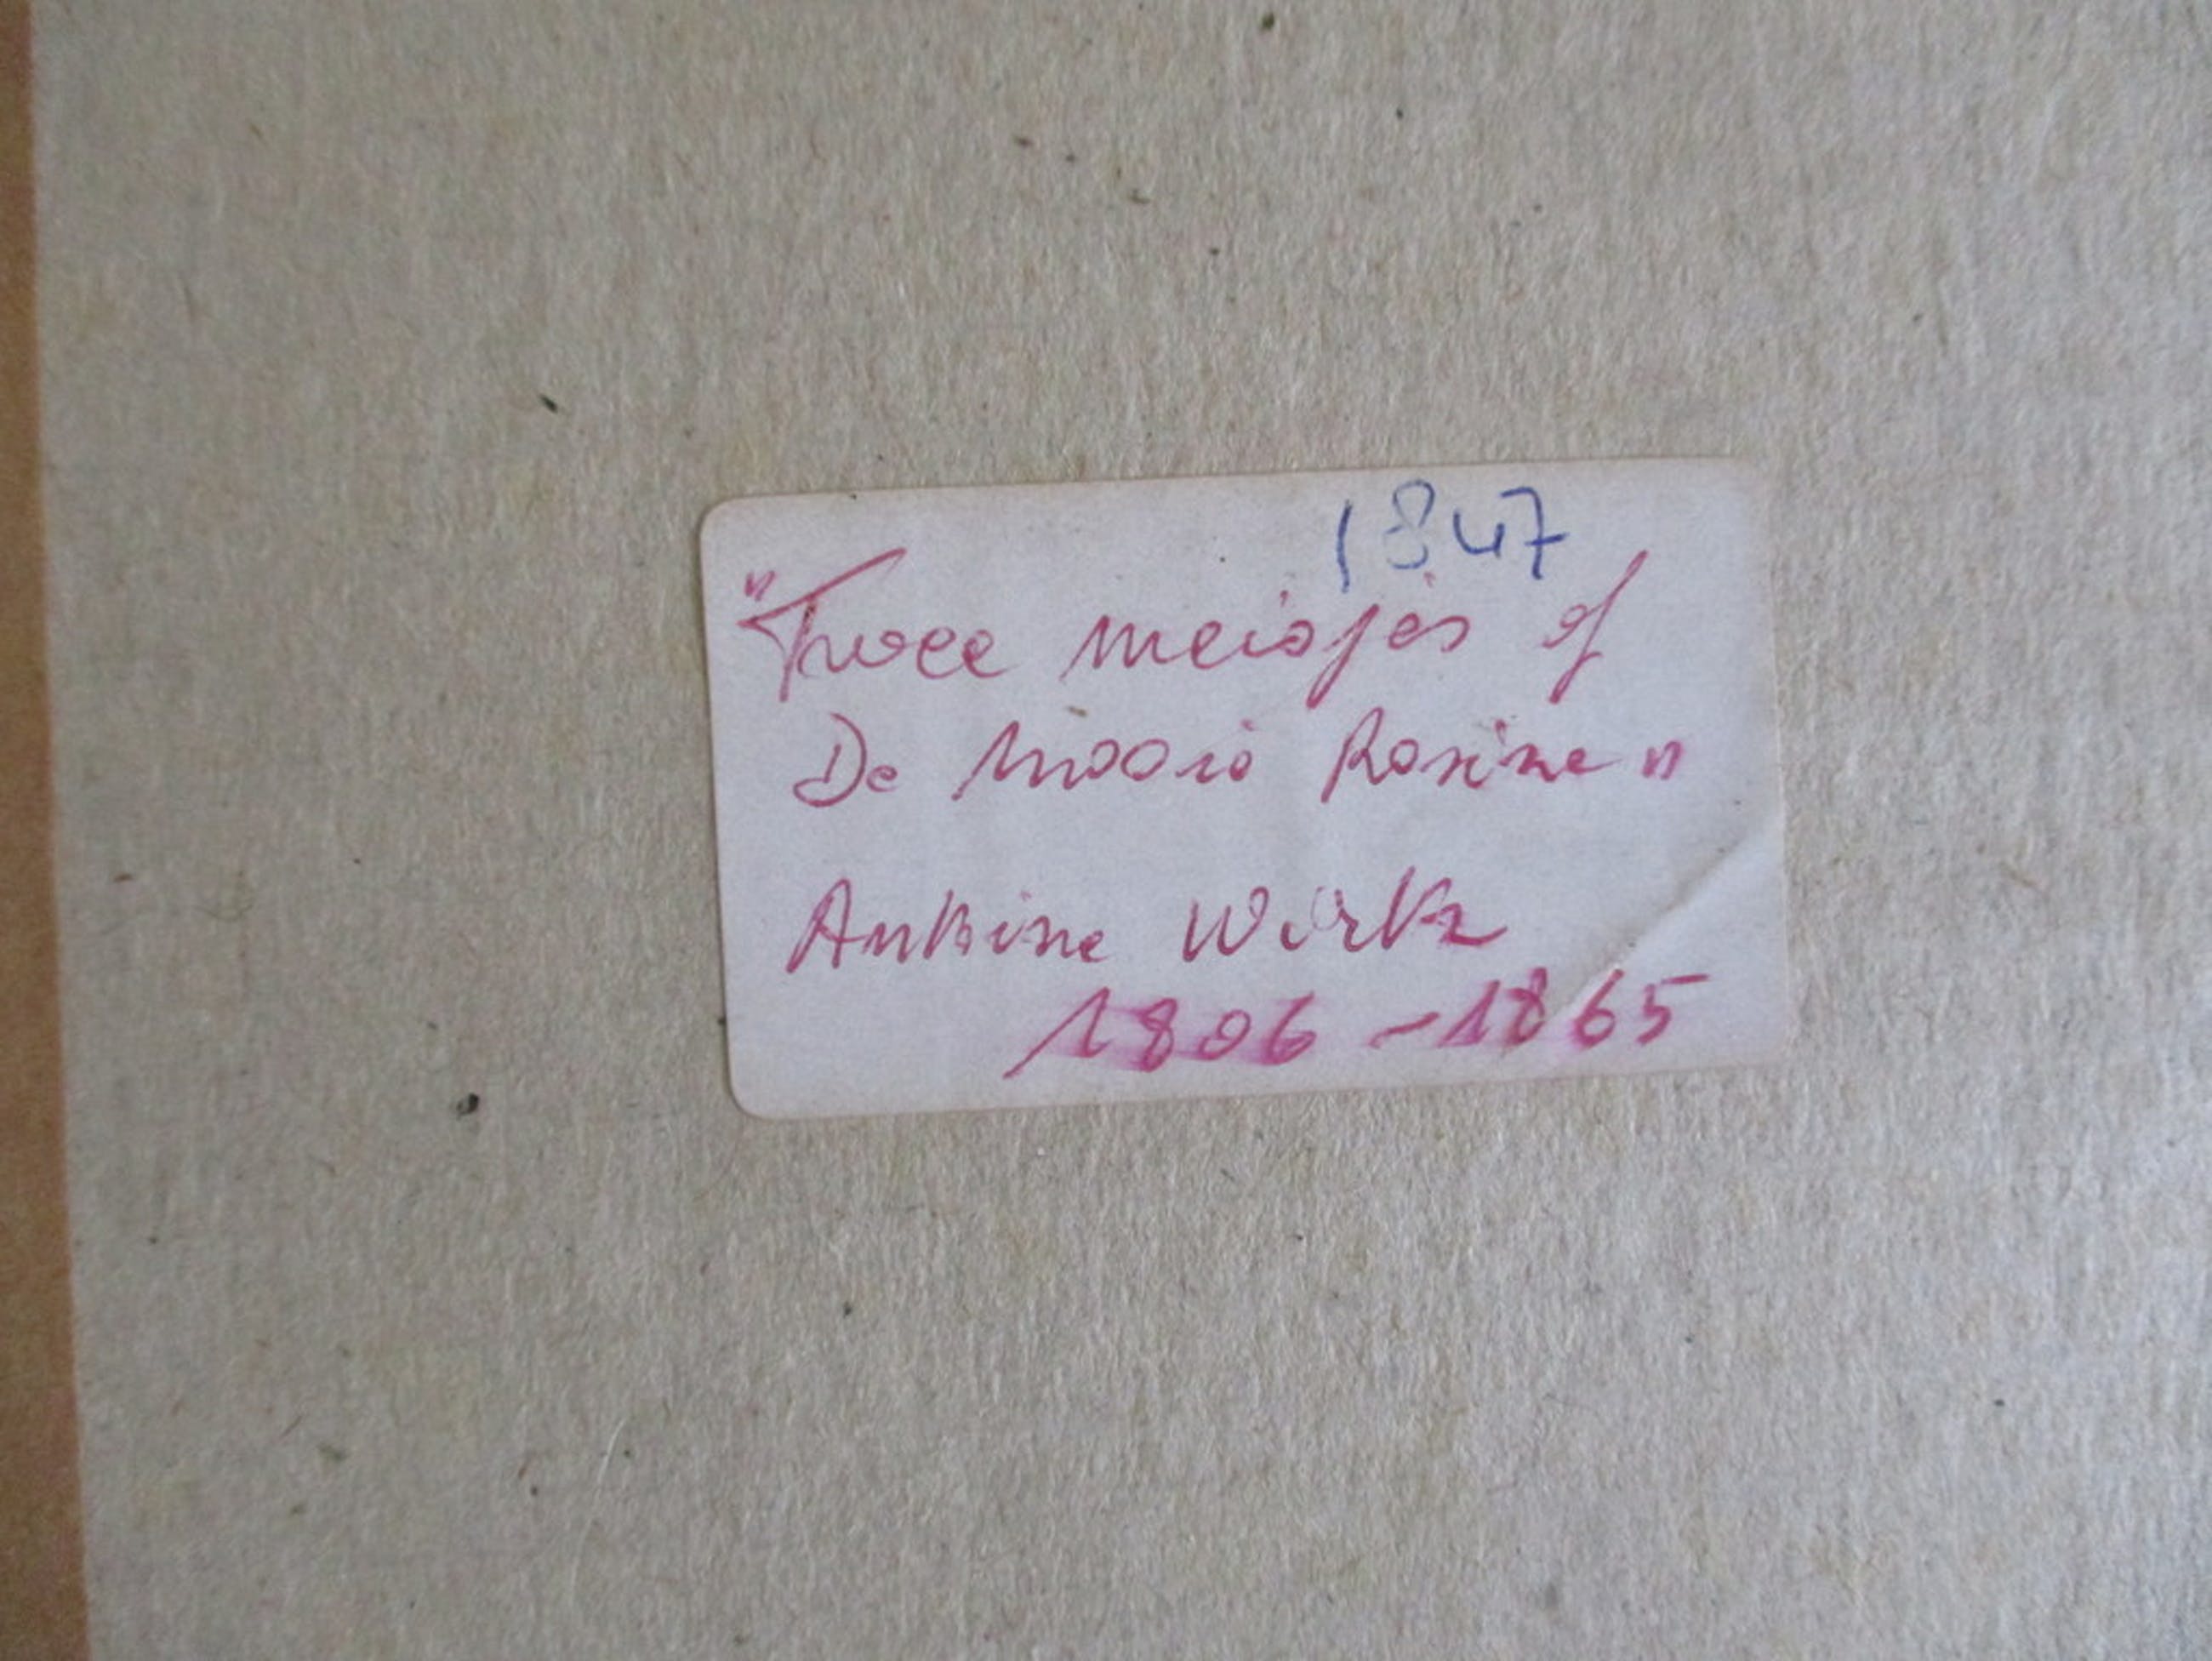 1847
"Twee meisjes of
De Mooie Rosine"
Antoine Wiertz
1806 - 1865